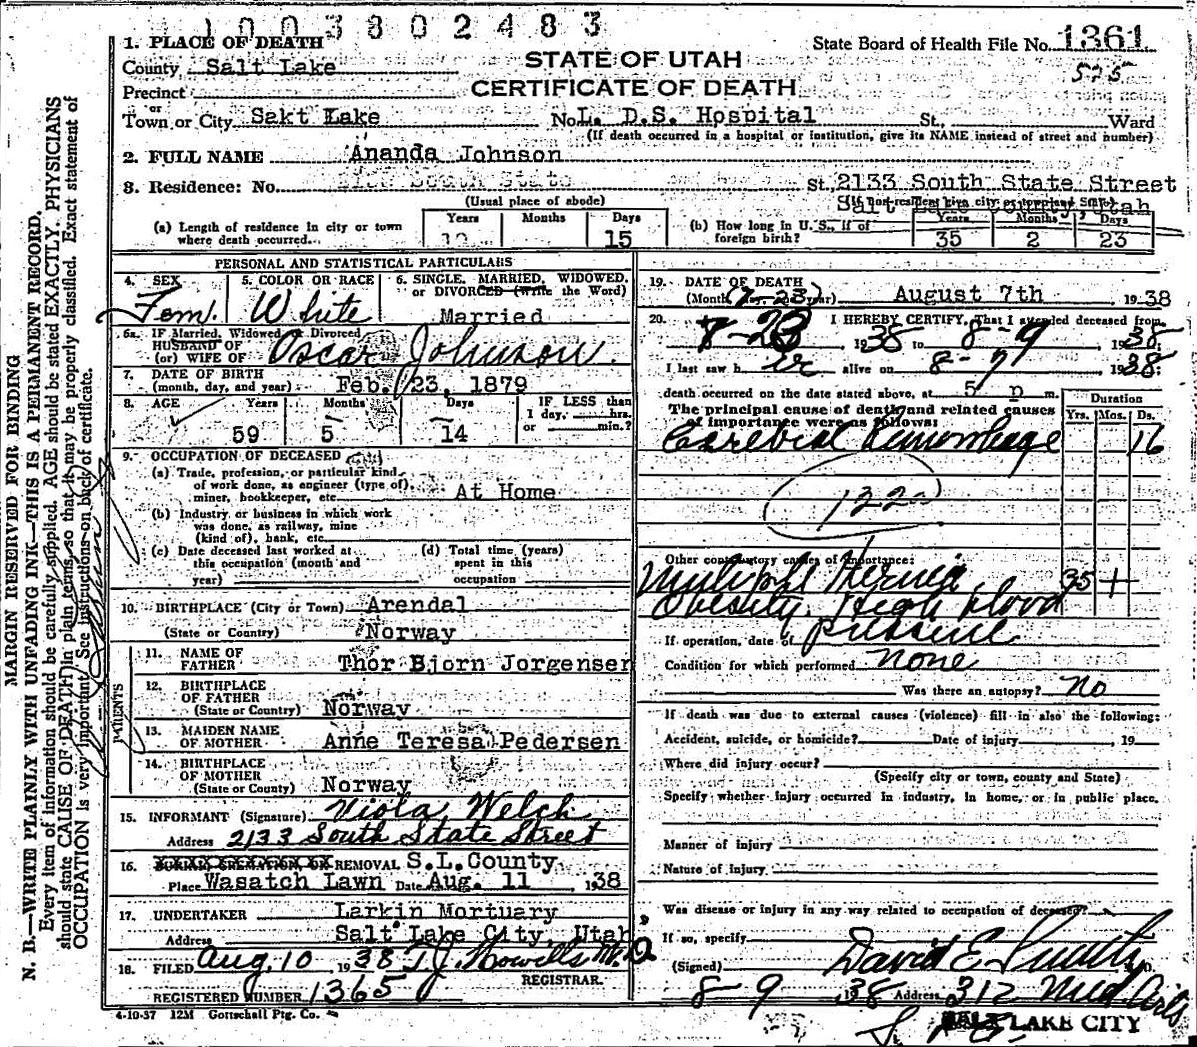 1003802483
1. PLACE OF DEATH
State Board of Health File No. 1361
STATE OF UTAH
County Salt Lake
575
CERTIFICATE OF DEATH
Precinct
or
Town or City Sakt Lake No. L. D.S. Hospital St., Ward
(If death occurred in a hospital or institution, give its NAME instead of street and number)
2. FULL NAME Ananda Johnson
3. Residence: No. St. 2133 South State Street
(Usual place of abode)
Salt Lake County, Utah
(a) Length of residence in city or town where death occurred. Years Months Days 15
(b) How long in U. S., if of foreign birth? Years 35 Months 2 Days 23
PERSONAL AND STATISTICAL PARTICULARS
4. SEX Fem.
5. COLOR OR RACE White
6. SINGLE, MARRIED, WIDOWED, or DIVORCED (write the Word) Married
6a. IF Married, Widowed or Divorced
HUSBAND OF
(or) WIFE OF Oscar Johnson.
7. DATE OF BIRTH
(month, day, and year) Feb. 23, 1879
8. AGE Years 59 Months 5 Days 14
IF LESS than 1 day, hrs. or min.?
9. OCCUPATION OF DECEASED
(a) Trade, profession, or particular kind of work done, as engineer (type of), miner, bookkeeper, etc. At Home
(b) Industry or business in which work was done, as railway, mine (kind of), bank, etc.
(c) Date deceased last worked at this occupation (month and year)
(d) Total time (years) spent in this occupation
10. BIRTHPLACE (City or Town) Arendal
(State or Country) Norway
PARENTS
11. NAME OF FATHER Thor Bjorn Jorgensen
12. BIRTHPLACE OF FATHER
(State or Country) Norway
13. MAIDEN NAME OF MOTHER Anne Teresa Pedersen
14. BIRTHPLACE OF MOTHER
(State or Country) Norway
15. INFORMANT (Signature) Viola Welch
Address 2133 South State Street
16. REMOVAL S.L.County
Place Wasatch Lawn Date Aug. 11 1938
17. UNDERTAKER Larkin Mortuary
Address Salt Lake City, Utah
18. FILED Aug. 10 1938 T.J. Howells M.D.
REGISTRAR.
REGISTERED NUMBER 1365
4-10-37 12M Gottschall Ptg. Co.
19. DATE OF DEATH
August 7th, 1938
20. I HEREBY CERTIFY, That I attended deceased from
8-9 1938
I last saw her alive on 8-7 1938;
death occurred on the date stated above, at 5 p m.
The principal cause of death and related causes of importance were as follows:
Duration
Yrs. Mos. Ds.
Cerebial Hemorrhage 16
122
Other contributory causes of importance:
Multiple Hernia 35 +
Obesity, High blood
pressure
If operation, date of
Condition for which performed none
Was there an autopsy? no
If death was due to external causes (violence) fill in also the following:
Accident, suicide, or homicide? Date of injury , 19
Where did injury occur?
(Specify city or town, county and State)
Specify whether injury occurred in industry, in home, or in public place.
Manner of injury
Nature of injury
Was disease or injury in any way related to occupation of deceased?
If so, specify
(Signed) David E. Smith, M.D.
8-9 1938 Address 312 Med Arts
SALT LAKE CITY
MARGIN RESERVED FOR BINDING
N. B.—WRITE PLAINLY WITH UNFADING INK—THIS IS A PERMANENT RECORD.
Every item of information should be carefully supplied. AGE should be stated EXACTLY. PHYSICIANS
should state CAUSE OF DEATH in plain terms, so that it may be properly classified. Exact statement of
OCCUPATION is very important. See instructions on back of certificate.